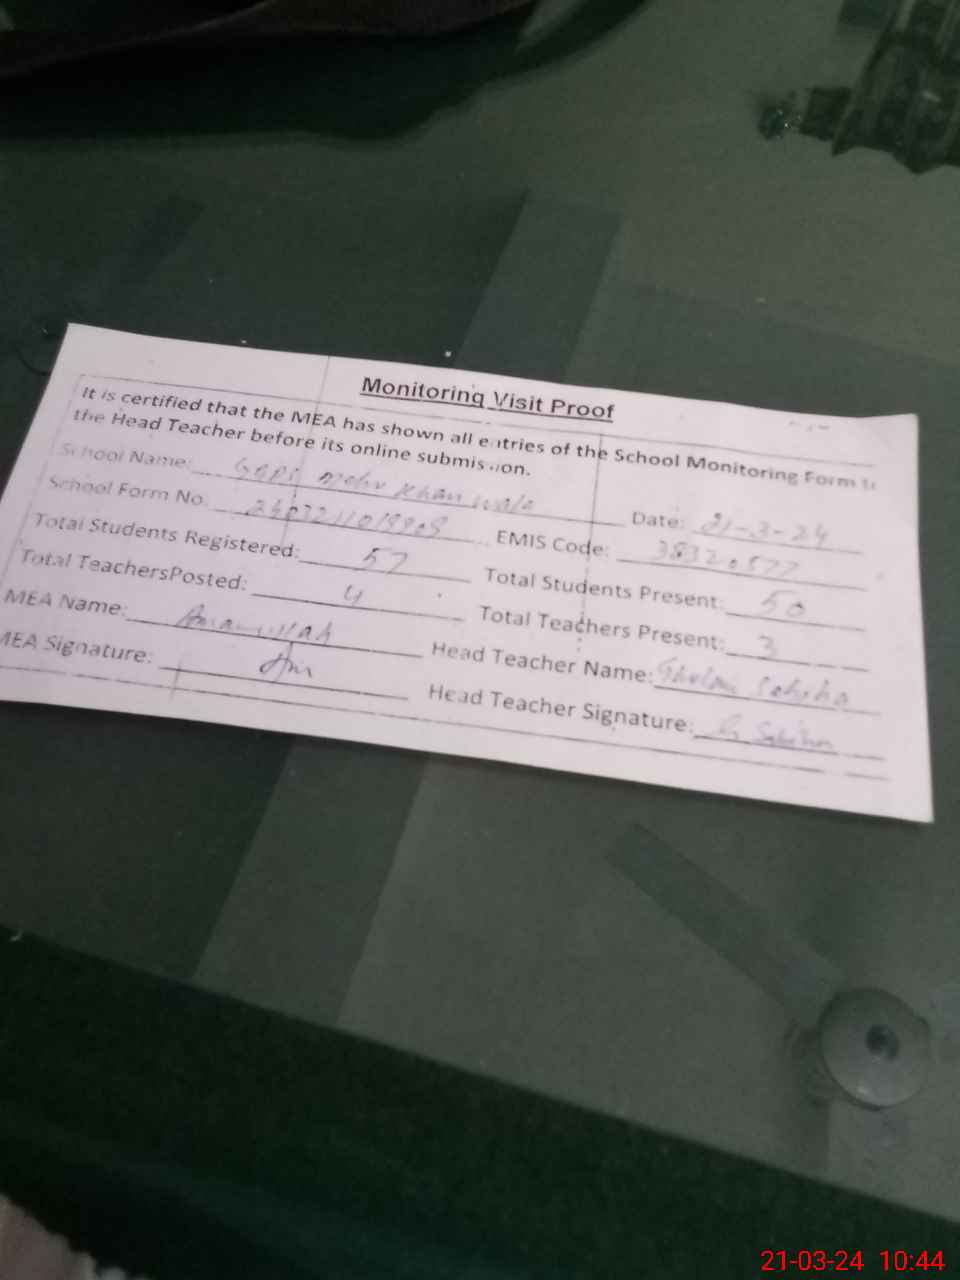 Monitoring Visit Proof
It is certified that the MEA has shown all entries of the School Monitoring Form to
the Head Teacher before its online submission.
School Name: GGPS Mehr Khan wala Date: 21-3-24
School Form No. EMIS Code: 38320577
Total Students Registered: 57 Total Students Present: 50
Total TeachersPosted: 4 Total Teachers Present: 3
MEA Name: Amanullah Head Teacher Name: Ghulam Sabiha
MEA Signature: Head Teacher Signature: G Sabiha
21-03-24 10:44